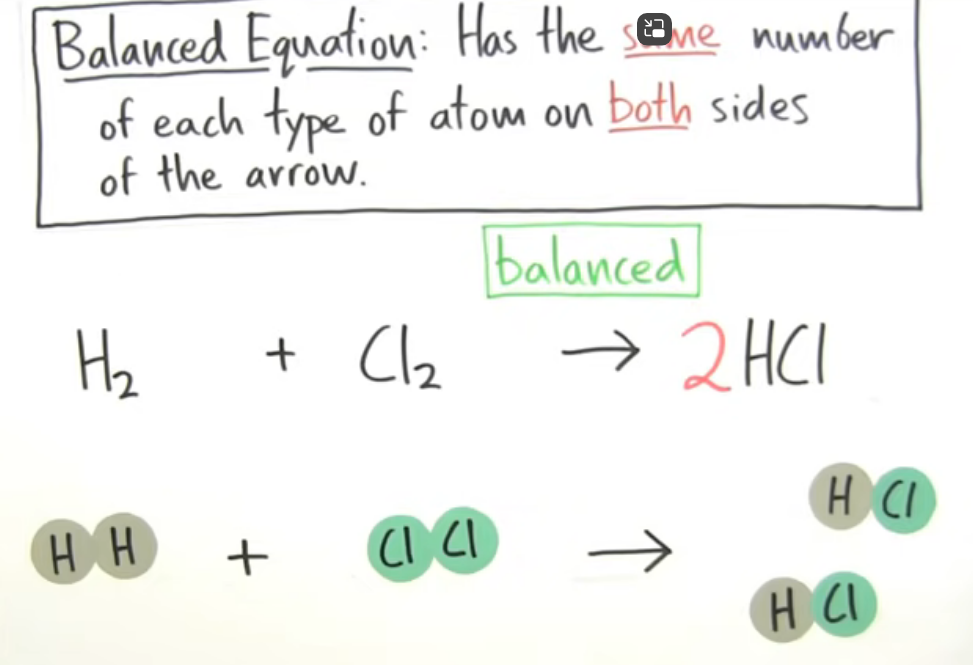 Balanced Equation: Has the same number
of each type of atom on both sides
of the arrow.
balanced
H₂ + Cl₂ → 2HCl
H Cl
H H + Cl Cl →
H Cl